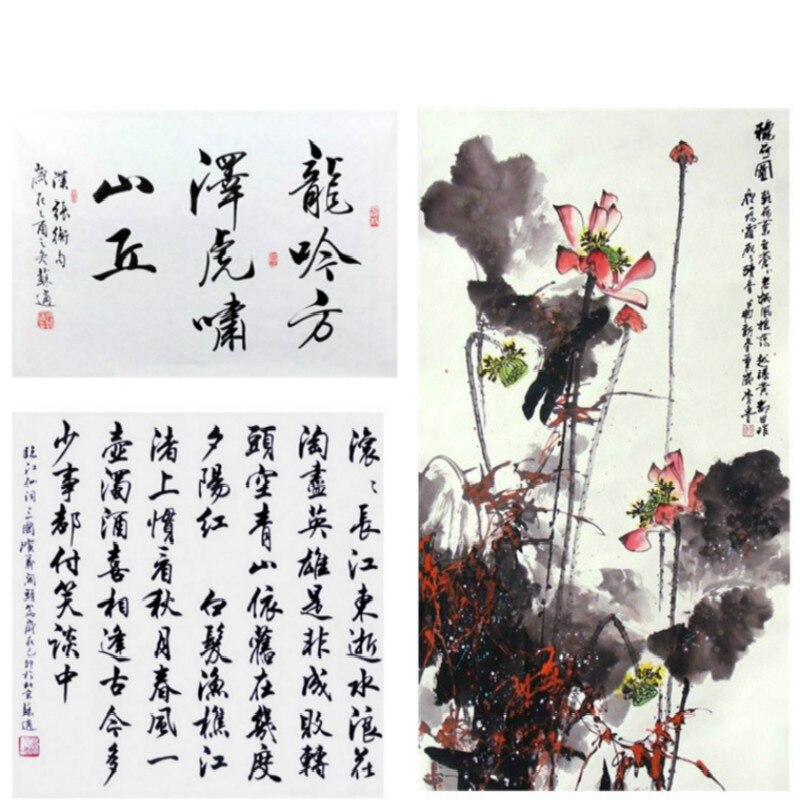 龍吟方
澤虎嘯
山丘
漢張衡句
歲在乙酉之冬蘇適
滾〻長江東逝水浪花
淘盡英雄是非成敗轉
頭空青山依舊在幾度
夕陽紅 白髮漁樵江
渚上慣看秋月春風一
壺濁酒喜相逢古今多
少事都付笑談中
臨江仙詞三國演義開頭篇歲在己卯於北京蘇適
荷圖